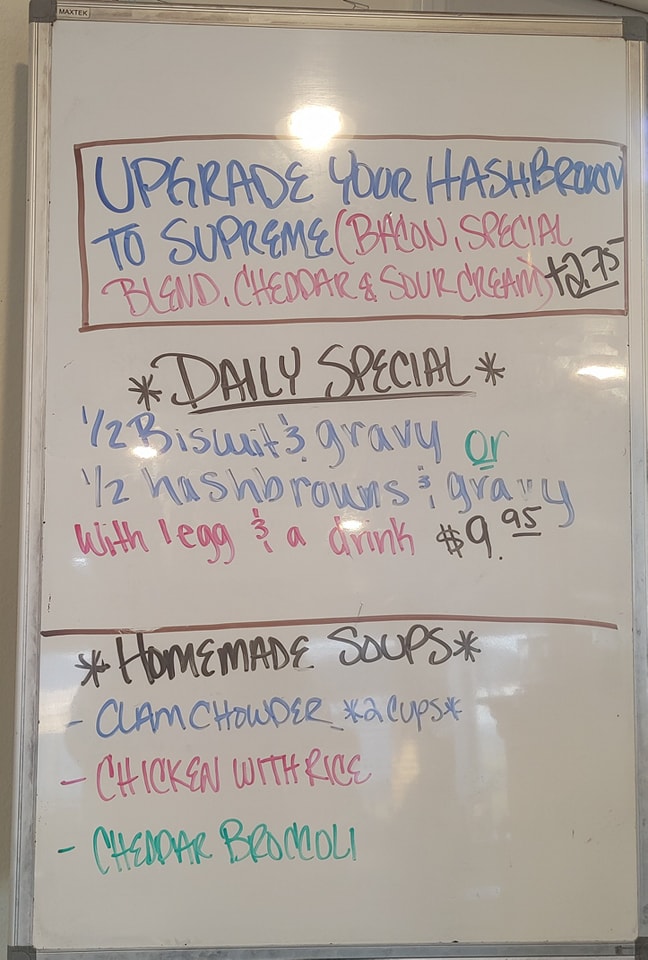 MAXTEK
UPGRADE YOUR HASHBROWN
TO SUPREME (BACON, SPECIAL
BLEND, CHEDDAR & SOUR CREAM) +2.75
*DAILY SPECIAL*
1/2 Biscuit & gravy or
1/2 hashbrowns & gravy
with 1 egg & a drink $9.95
*HOMEMADE SOUPS*
- CLAM CHOWDER *2 cups*
- CHICKEN WITH RICE
- CHEDDAR BROCCOLI